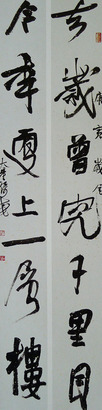 去歲曾窮千里目
今年更上一層樓